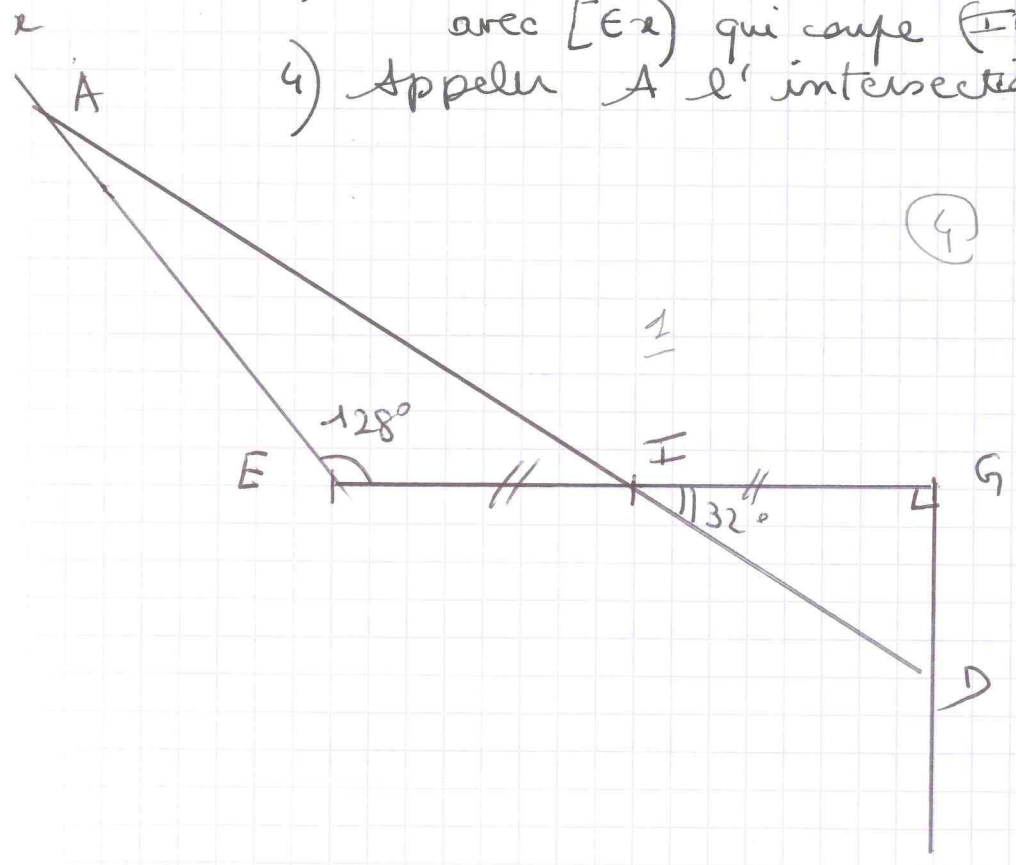 avec [Ex) qui coupe (I
x
4) Appeler A l'intersectio
A
4
1
128°
E
I
G
32°
D